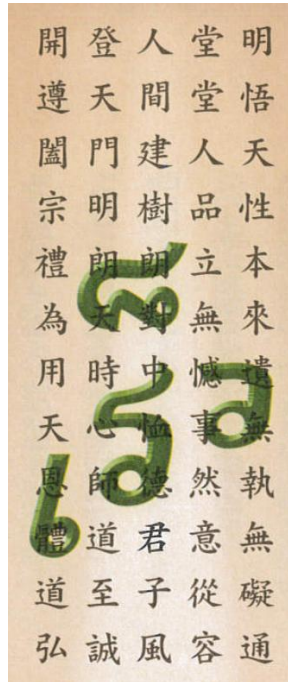 明悟天性本來遺無執無礙通
堂堂人品立無憾事然意從容
人間建樹朗對中恤德君子風
登天門明朗天時心師道至誠
開遵闔宗禮為用天恩體道弘